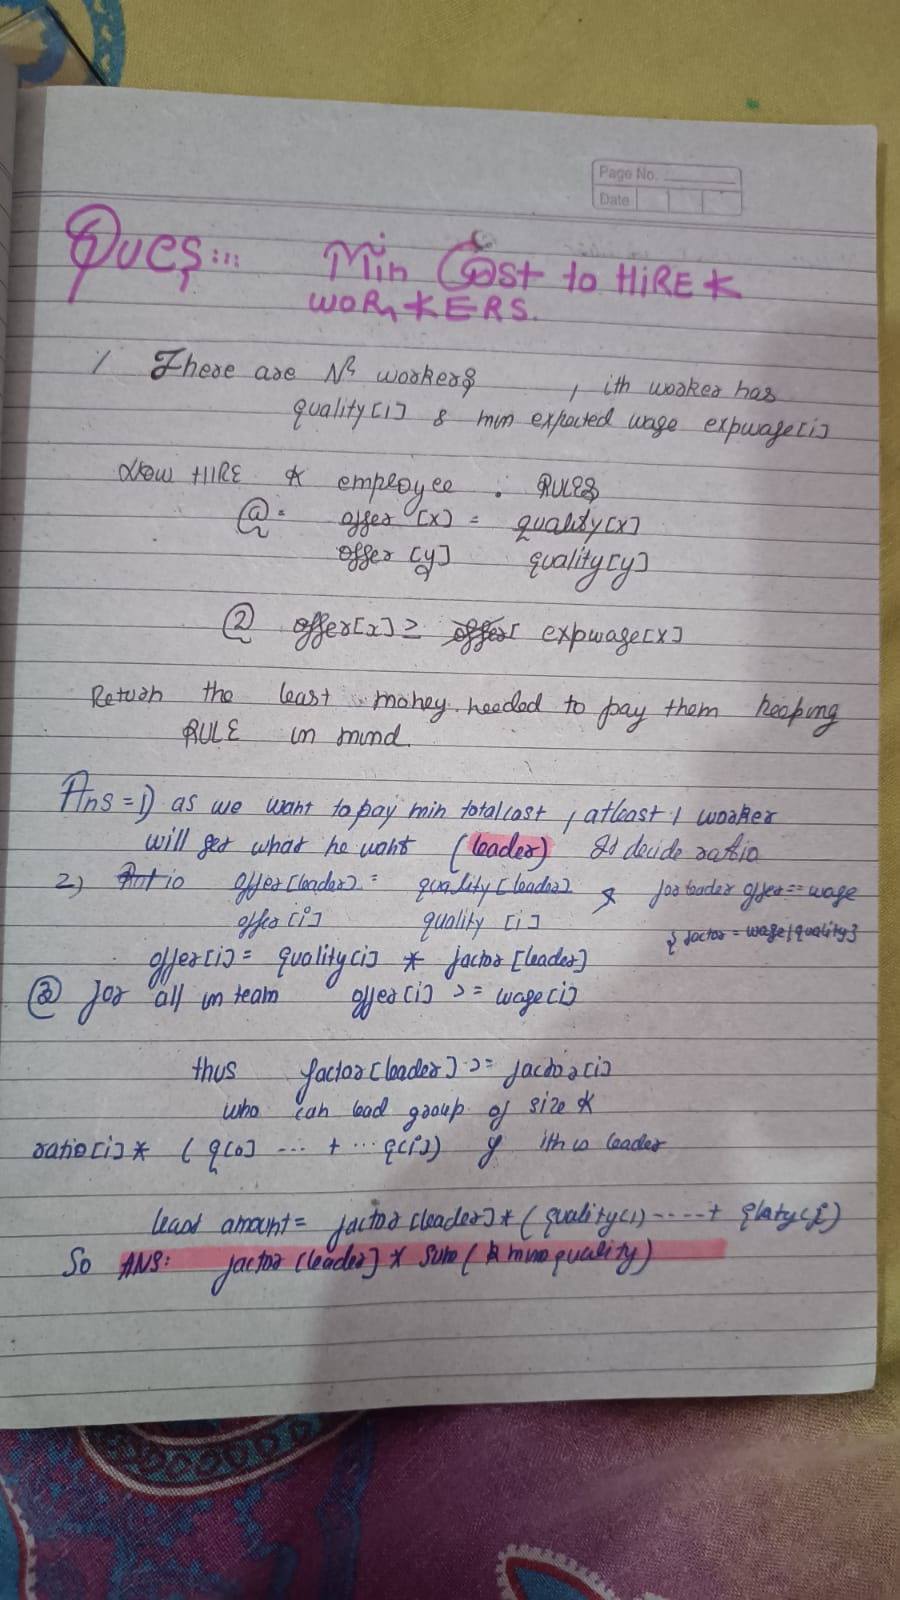 Page No.
Date
Ques::: Min Cost to HIRE K
WORKERS.
/ There are N workers , ith worker has
quality[i] & min expected wage expwage[i]
Now HIRE K employee . RULES
offer [x] = quality[x]
offer [y] quality[y]
② offer[x] ≥ offer[ expwage[x]
Return the least money needed to pay them keeping
RULE in mind.
Ans = 1) as we want to pay min total cost , atleast 1 worker
will get what he want (leader) decide ratio
2) Ratio offer[leader] = quality[leader] & for leader offer == wage
offer[i] quality [i] { factor = wage/quality }
offer[i] = quality[i] * factor[leader]
③ for all in team offer[i] >= wage[i]
thus factor[leader] >= factor[i]
who can lead group of size K
ratio[i] * ( q[0] --- + --- q[i]) if ith is leader
least amount = factor[leader] * ( quality[1) ----- +
So ANS: factor [leader] * sum ( K quality)